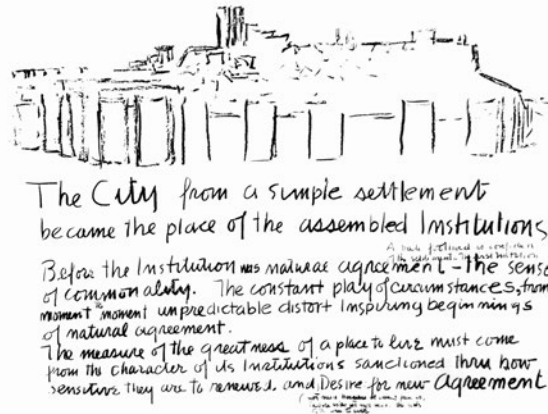 The City from a simple settlement
became the place of the assembled Institutions
Before the Institution was natural agreement - the sense
of commonality. The constant play of circumstances, from
moment to moment unpredictable distort Inspiring beginnings
of natural agreement.
The measure of the greatness of a place to live must come
from the character of its Institutions sanctioned thru how
sensitive they are to renewed and Desire for new Agreement